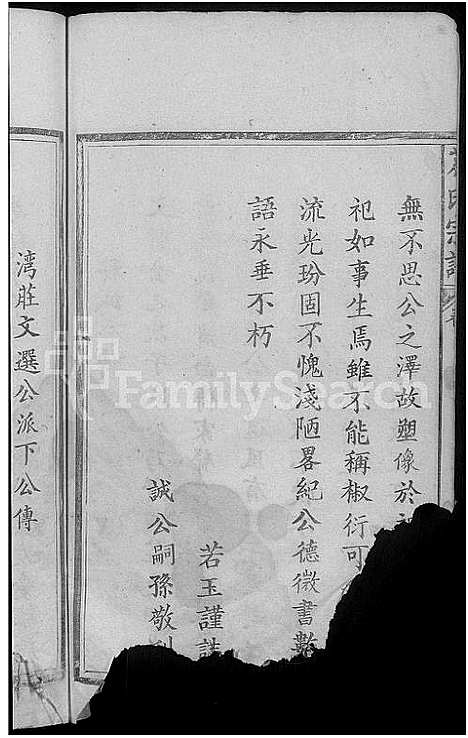 氏宗譜
無不思公之澤故塑像於
祀如事生焉雖不能稱椒衍可
流光玢固不愧淺陋畧紀公德微書數
語永垂不朽
若玉謹誌
誠公嗣孫敬刊
湾莊文選公派下公傳
FamilySearch